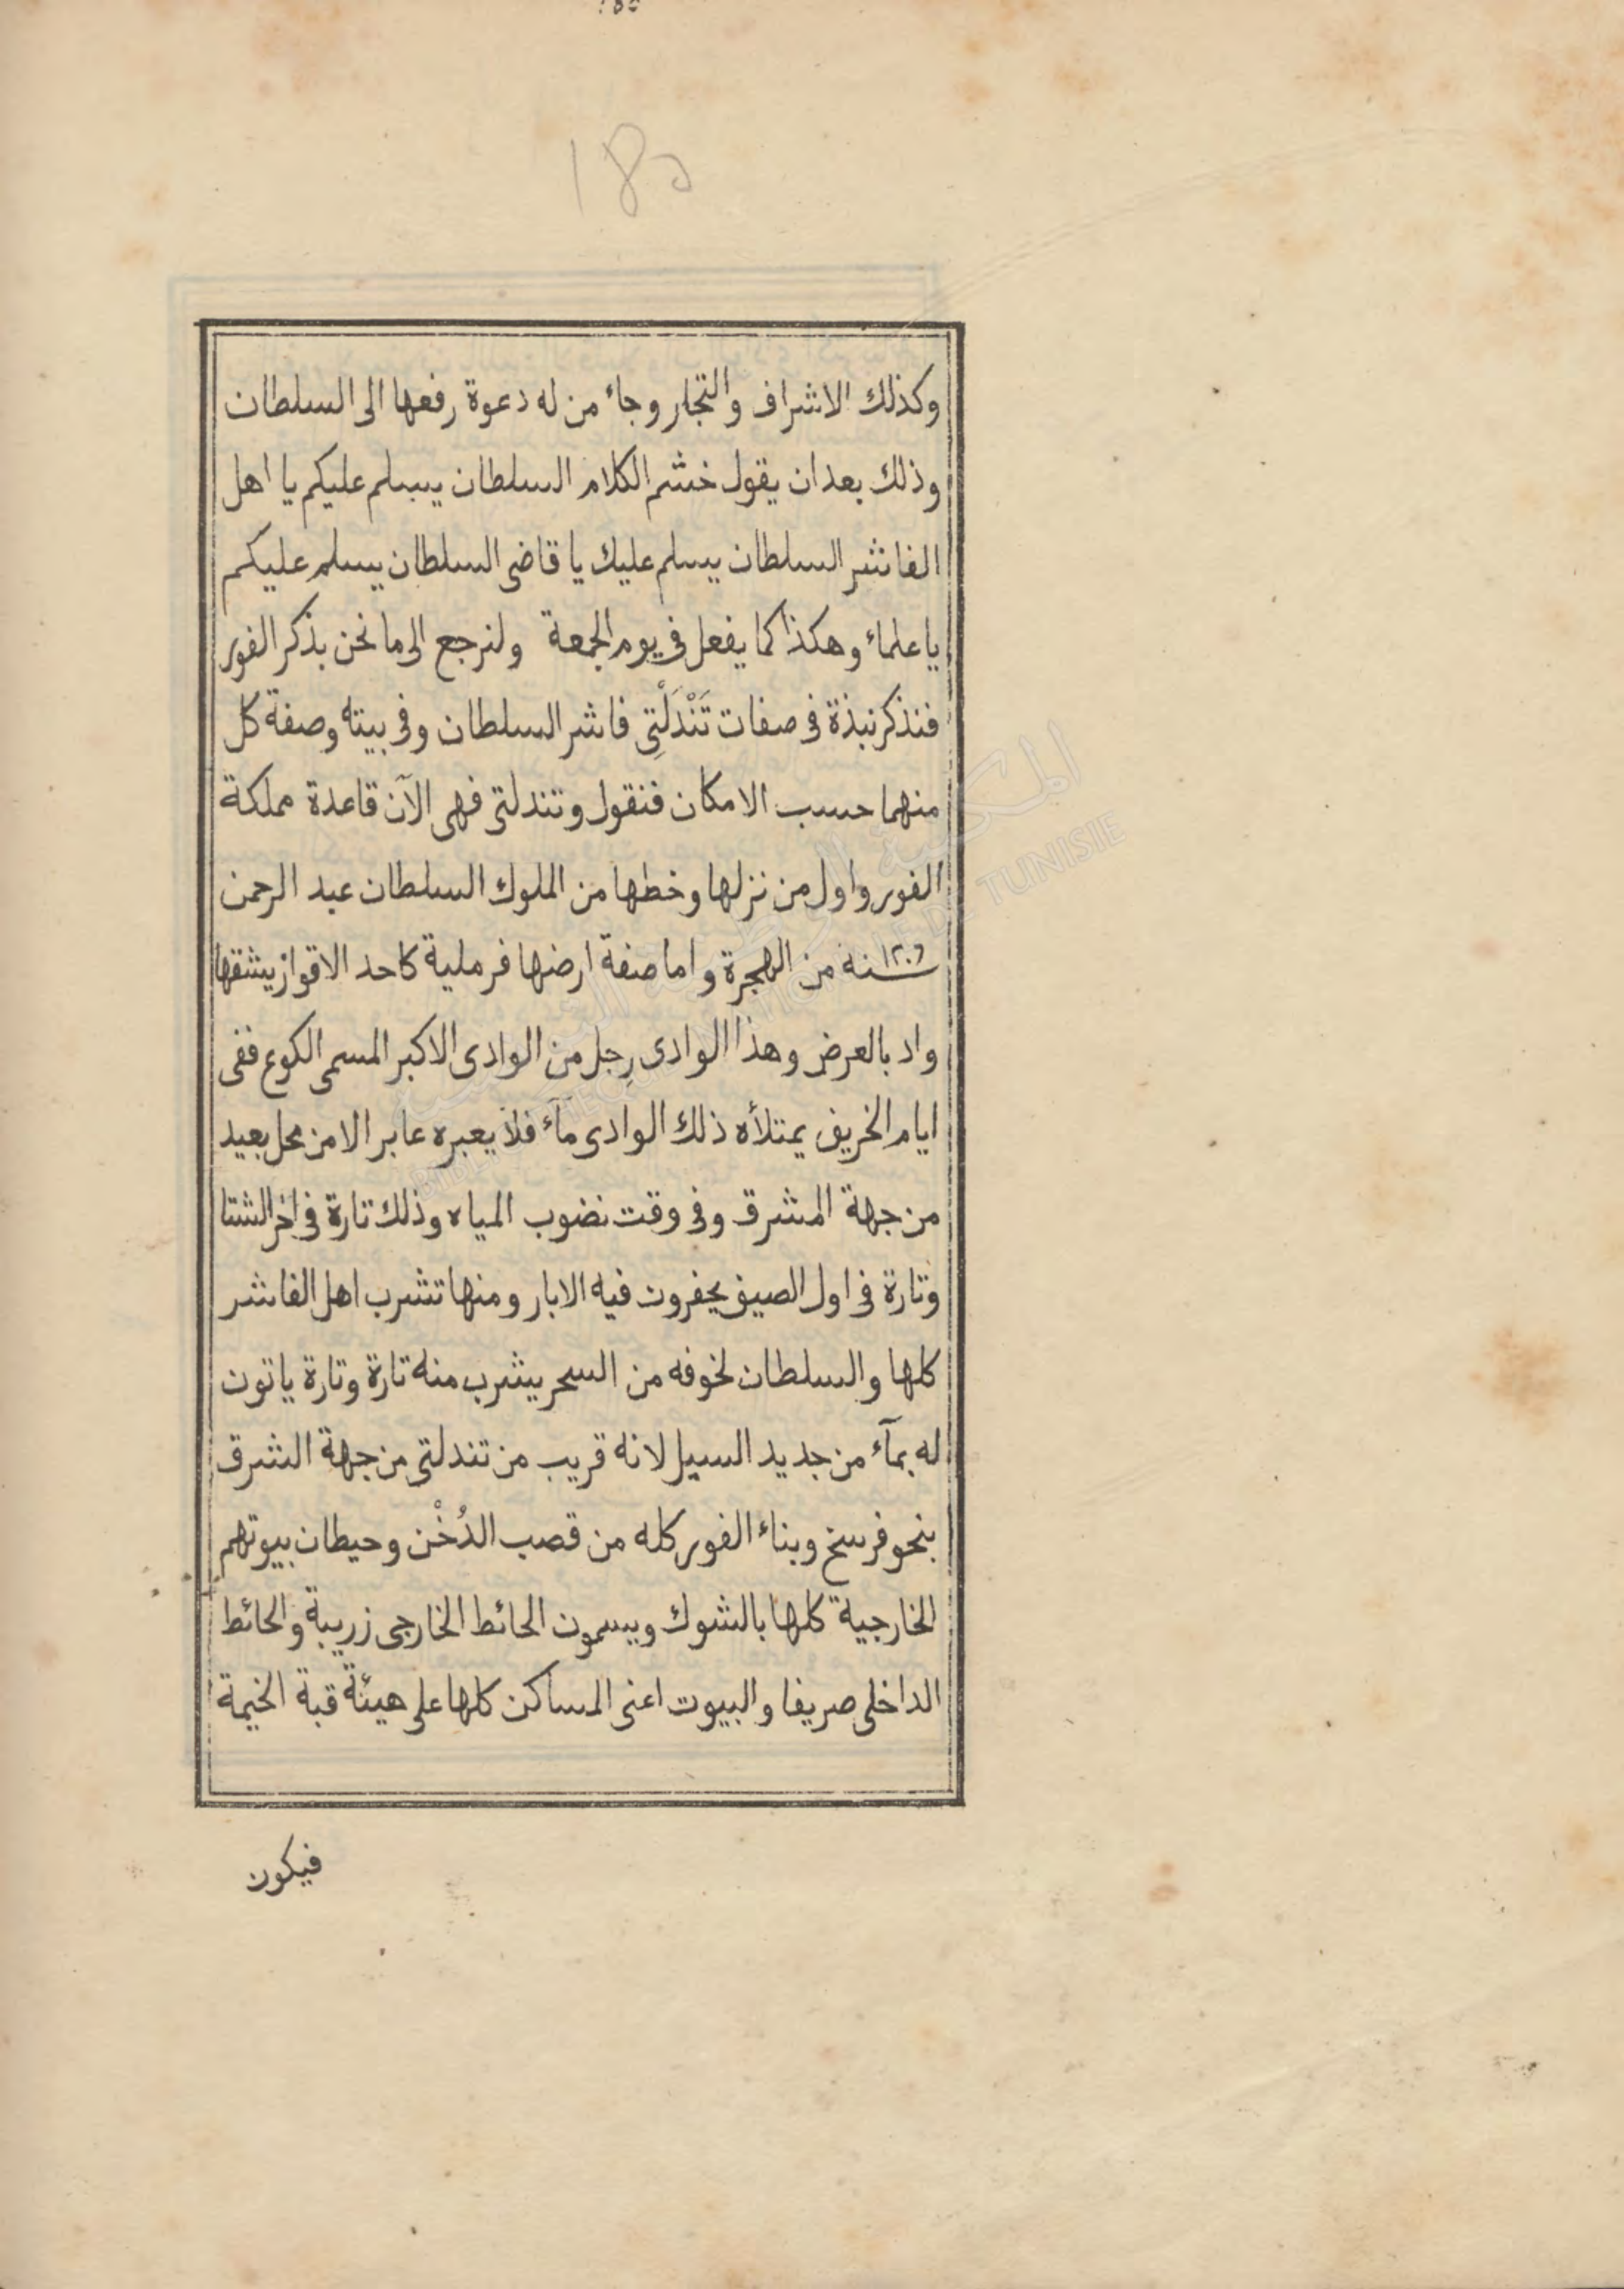 185
وكذلك الاشراف والتجار وجاء من له دعوة رفعها الى السلطان
وذلك بعد ان يقول خشم الكلام السلطان يسلم عليكم يا اهل
الفاشر السلطان يسلم عليك يا قاضى السلطان يسلم عليكم
يا علماء وهكذا كما يفعل فى يوم الجمعة ولنرجع الى ما نحن بذكر الفور
فنذكر نبذة فى صفات تَنْدَلْتِى فاشر السلطان وفى بيته وصفة كل
منهما حسب الامكان فنقول وتندلتى فهى الآن قاعدة مملكة
الفور واول من نزلها وخطها من الملوك السلطان عبد الرحمن
سنة ١٢٠٦ من الهجرة واما صفة ارضها فرملية كاحد الاقواز يشقها
واد بالعرض وهذا الوادى رِجل من الوادى الاكبر المسمى الكوع ففى
ايام الخريف يمتلأه ذلك الوادى مآء فلا يعبره عابر الا من محل بعيد
من جهة المشرق وفى وقت نضوب المياه وذلك تارة فى اخر الشتا
وتارة فى اول الصيف يحفرون فيه الابار ومنها تشرب اهل الفاشر
كلها والسلطان لخوفه من السحر يشرب منه تارة وتارة ياتون
له بمآء من جديد السيل لانه قريب من تندلتى من جهة الشرق
بنحو فرسخ وبناء الفور كله من قصب الدُخْن وحيطان بيوتهم
الخارجية كلها بالشوك ويسمون الحائط الخارجى زريبة والحائط
الداخلى صريفا والبيوت اعنى المساكن كلها على هيئة قبة الخيمة
فيكون